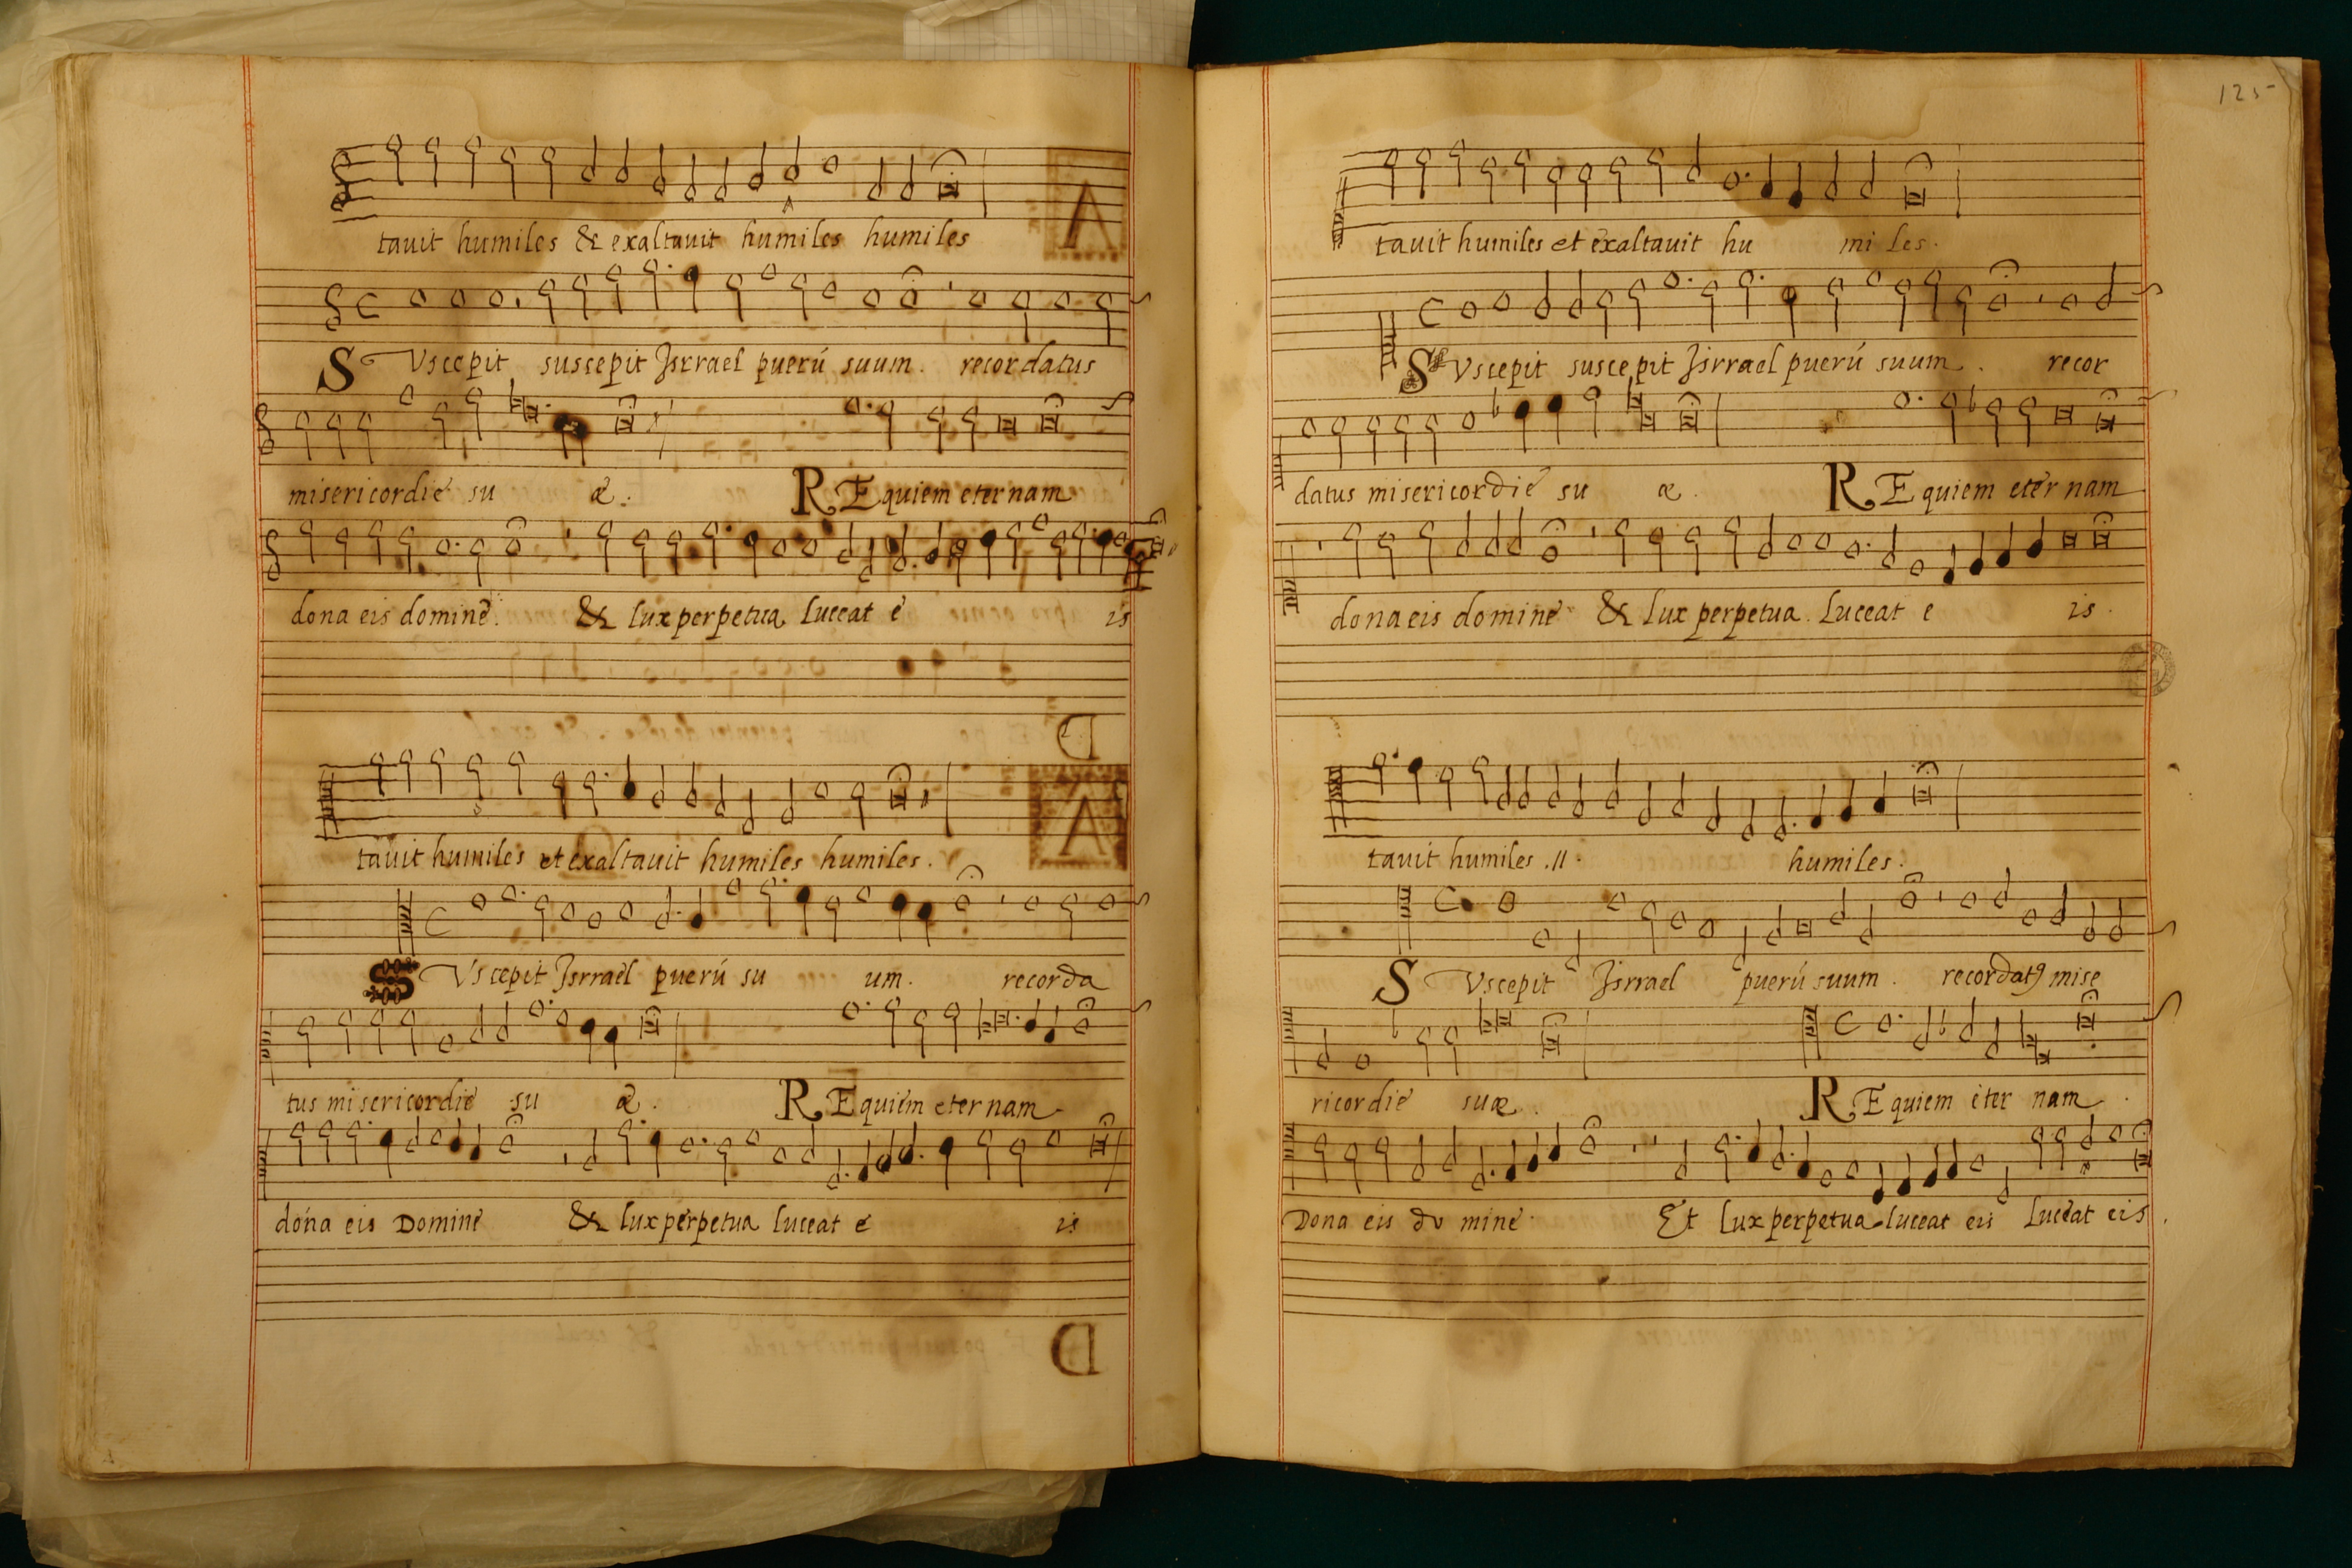 tauit humiles & exaltauit humiles humiles
S Vscepit suscepit Jsrrael puerú suum. recordatus
misericordie su æ. REquiem eternam
dona eis domine. & lux perpetua Luceat e is
tauit humiles et exaltauit humiles humiles.
S Vscepit Jsrrael puerú su um. recorda
tus misericordie su æ. REquiem eternam
dona eis Domine & lux perpetua luceat e is
125
tauit humiles et exaltauit hu mi les.
S Vscepit suscepit Jsrrael puerú suum. recor
datus misericordie su æ. REquiem eternam
dona eis domine & lux perpetua Luceat e is.
tauit humiles .II. humiles.
S Vscepit Jsrrael puerú suum. recordatꝰ mise
ricordie suæ. REquiem eter nam
Dona eis do mine Et lux perpetua luceat eis Luceat eis.